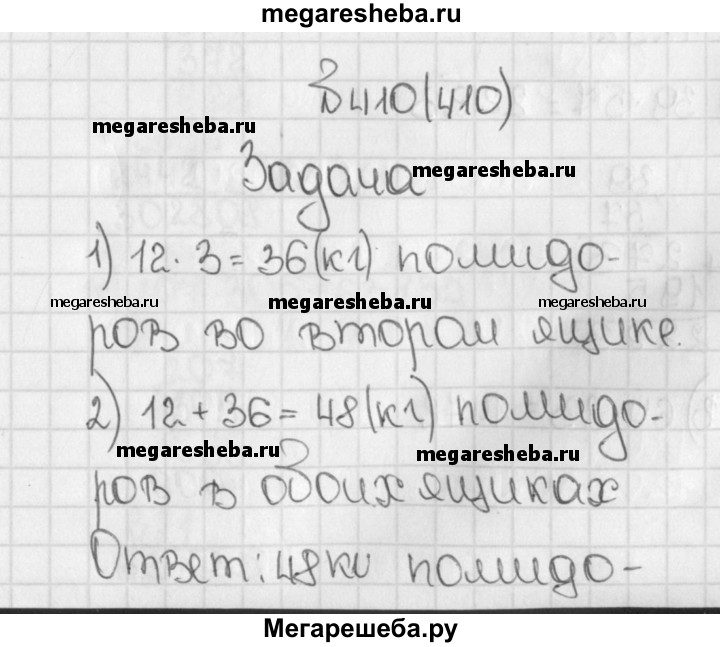 megaresheba.ru
№410(410)
megaresheba.ru
Задача megaresheba.ru
1) 12·3=36(кг) помидо-
megaresheba.ru megaresheba.ru megaresheba.ru
ров во втором ящике.
2) 12+36=48(кг) помидо-
megaresheba.ru megaresheba.ru
ров в обоих ящиках
Ответ: 48кг помидо-
Мегарешеба.ру